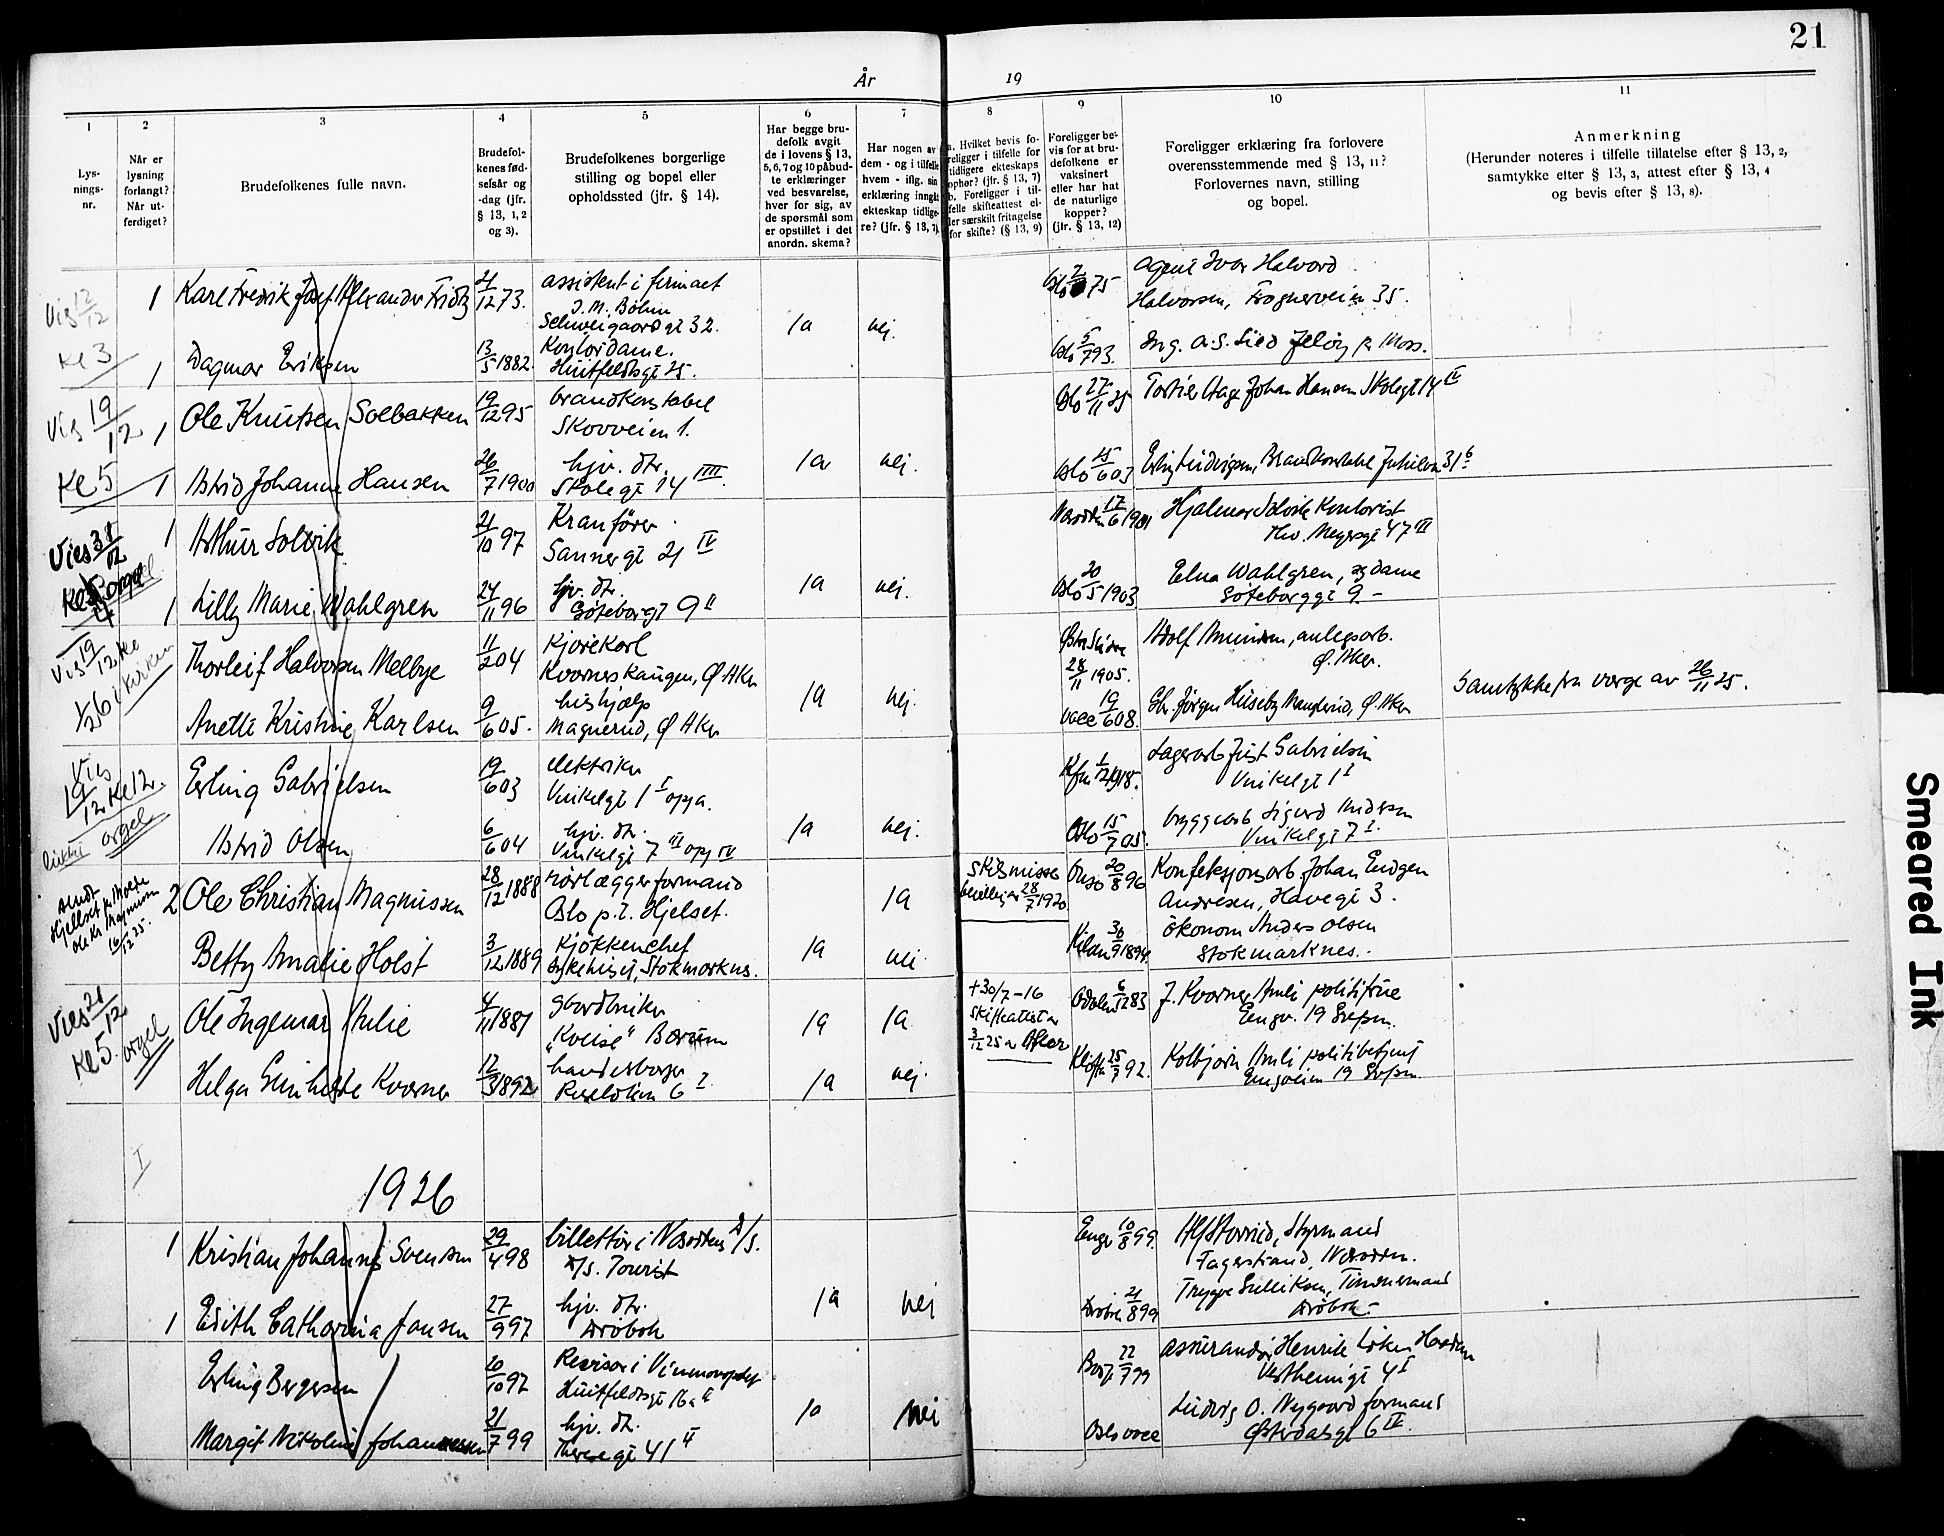 21
År 19
1
Lys-
nings-
nr.
2
Når er
lysning
forlangt?
Når ut-
ferdiget?
3
Brudefolkenes fulle navn.
4
Brudefol-
kenes fød-
selsår og
-dag (jfr.
§ 13, 1, 2
og 3).
5
Brudefolkenes borgerlige
stilling og bopel eller
opholdssted (jfr. § 14).
6
Har begge bru-
defolk avgit
de i lovens § 13,
5, 6, 7 og 10 påbud-
te erklæringer
ved besvarelse,
hver for sig, av
de spørsmål som
er opstillet i det
anordn. skema?
7
Har nogen av
dem - og i tilfelle
hvem - iflg. sin
erklæring inngåt
ekteskap tidlige-
re? (jfr. § 13, 7).
8
a. Hvilket bevis fo-
religger i tilfelle for
tidligere ekteskaps
ophør? (jfr. § 13, 7)
b. Foreligger i til-
felle skifteattest el-
ler særskilt fritagelse
for skifte? (§ 13, 9)
9
Foreligger be-
vis for at bru-
defolkene er
vaksinert
eller har hat
de naturlige
kopper?
(jfr. § 13, 12)
10
Foreligger erklæring fra forlovere
overensstemmende med § 13, 11?
Forlovernes navn, stilling
og bopel.
11
Anmerkning
(Herunder noteres i tilfelle tillatelse efter § 13, 2,
samtykke efter § 13, 3, attest efter § 13, 4
og bevis efter § 13, 8).
Vis 12/12
1 Karl Fredrik Josef Alexander
21/12 73.
assistent i firmaet
J. M. Böhm
Schweigaardsgt 32.
Ja nej.
Oslo 75
agent Ivar Halvord
Halvorsen, Frognerveien 35.
Kl 3
1 Dagmar Eriksen
13/5 1882.
Kontordame.
Huitfeldtsgt 25.
Oslo 5/7 93.
Ing. Jeløy pr Moss.
Vis 19/12
1 Ole Knutsen Solbakken
19/12 95
brandkonstabel
Skovveien 1.
Oslo 27/11 25
Portier Aage Johan Hansen Skolegt 14 IV
Kl 5
1 Astrid Johanne Hansen
26/7 1900
hjv. dtr.
Skolegt 14 IIII
Ja nej.
Oslo 25/6 03
Brandkonstabel
Vies 31/12
1 Arthur Solvik
21/10 97
Kranfører
Sannergt 21 IV
17/6 1901
Hjalmar Solvik Kontorist
Thv. Meyersgt 47 III
orgel
1 Lilly Marie Wahlgren
24/11 96
hjv. dtr.
Göteborgt 9 II
Ja nej.
Oslo 20/5 1903
Elna Wahlgren, sydame
Göteborggt 9 -
Vis 19/12 Kl
1/2 6 i kirken
Thorleif Halvorsen Melbye
11/2 04
Kjørekarl
Kværnerskaugen, Ø. Aker
28/11 1905.
Adolf Amundsen, anlegsarb.
Ø. Aker.
Anette Kristine Karlsen
9/6 05.
hushjælp
Magnerud, Ø Aker
Ja nej.
vacc 19/6 08.
Jørgen Huseby Manglerud, Ø. Aker
Samtykke fra verge av 26/11 25.
Vies
19/12 Kl 12.
orgel
Erling Gabrielsen
19/6 03
elektriker
Vinkelgt 1 I opg a.
1/12 1918.
Lagerarb Just Gabrielsen
Vinkelgt 1 I
Astrid Olsen
6/6 04
hjv. dtr.
Vinkelgt 7 III opg IV
Ja nej.
Oslo 15/7 05.
bryggearb Sigurd Andersen
Vinkelgt 7 I.
2 Ole Christian Magnussen
28/12 1888
rørlæggerformand
Oslo p. t. Hjelset.
Ja
skilsmisse
bevilling av 28/7 1920
Onsø 20/8 96
Konfeksjonsarb Johan Eugen
Andresen, Havegt 3.
Betty Amalie Holst
3/12 1889
Kjøkkenchef
Sykehuset, Stokmarknes.
Ja nej.
30/9 1894.
økonom Anders Olsen
Stokmarknes.
Vies 21/12
Kl 5. orgel
Ole Ingemar
4/11 1881
gårdbruker
Bærum
Ja Ja
+30/7-16
skifteattest av
3/12 25 av Asker
Odalen 6/12 83
politifue
Engv. 19 Grefsen.
Helga Kværner
12/3 1892
handelsborger
Ruseløkvn 6 I
Ja nej.
25/7 92.
Kolbjørn politibetjent
Engveien 19 Grefsn.
I
1926
1 Kristian Johannes Svensen
29/4 98
billettør i Nesodden A/S.
D/S. Tourist
Enge 10/8 99.
Styrmand
Fagerstrand, Nesodden.
1 Edith Catharina Jansen
27/9 97
hjv. dtr.
Drøbak
Ja nej
Drøbak 21/8 99
Trygve Gulliksen, Tømmermand
Drøbak -
Erling Bergersen
20/10 97
Revisor i Vinmonopolet
Huitfeldtsgt 16 a II
22/7 99
assurandør Henrik Løken
Vestheimgt 4 I
Margit Nikoline Johannessen
21/7 99
hjv. dtr.
Theresegt 41 II
Ja nei
Oslo vacc
Ludvig O. Nygaard formand
Østerdalsgt 6 IV.
Smeared Ink